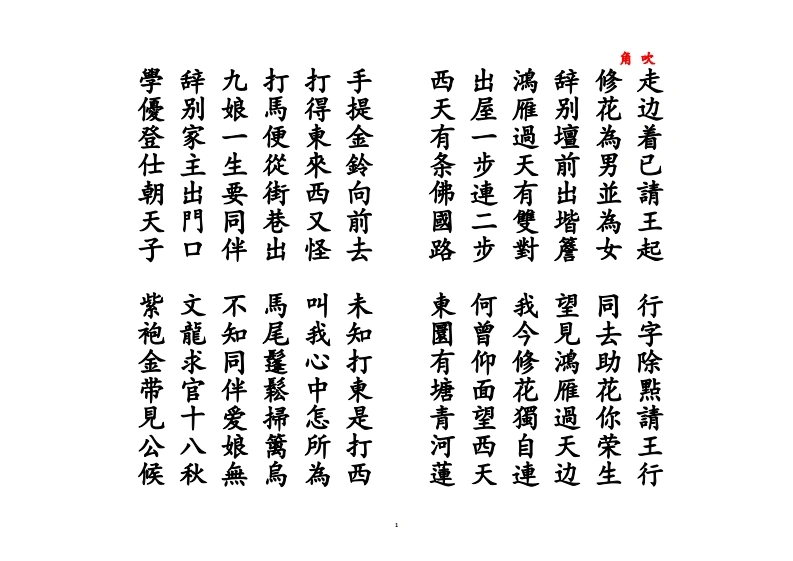 吹角
走边着已請王起 行字除點請王行
修花為男並為女 同去助花你荣生
辞别壇前出堦簷 望見鴻雁過天边
鴻雁過天有雙對 我今修花獨自連
出屋一步連二步 何曾仰面望西天
西天有条佛國路 東園有塘青河蓮
手提金鈴向前去 未知打東是打西
打得東來西又怪 叫我心中怎所為
打馬便從街巷出 馬尾髼鬆掃籬烏
九娘一生要同伴 不知同伴爱娘無
辞别家主出門口 文龍求官十八秋
學優登仕朝天子 紫袍金带見公候
1